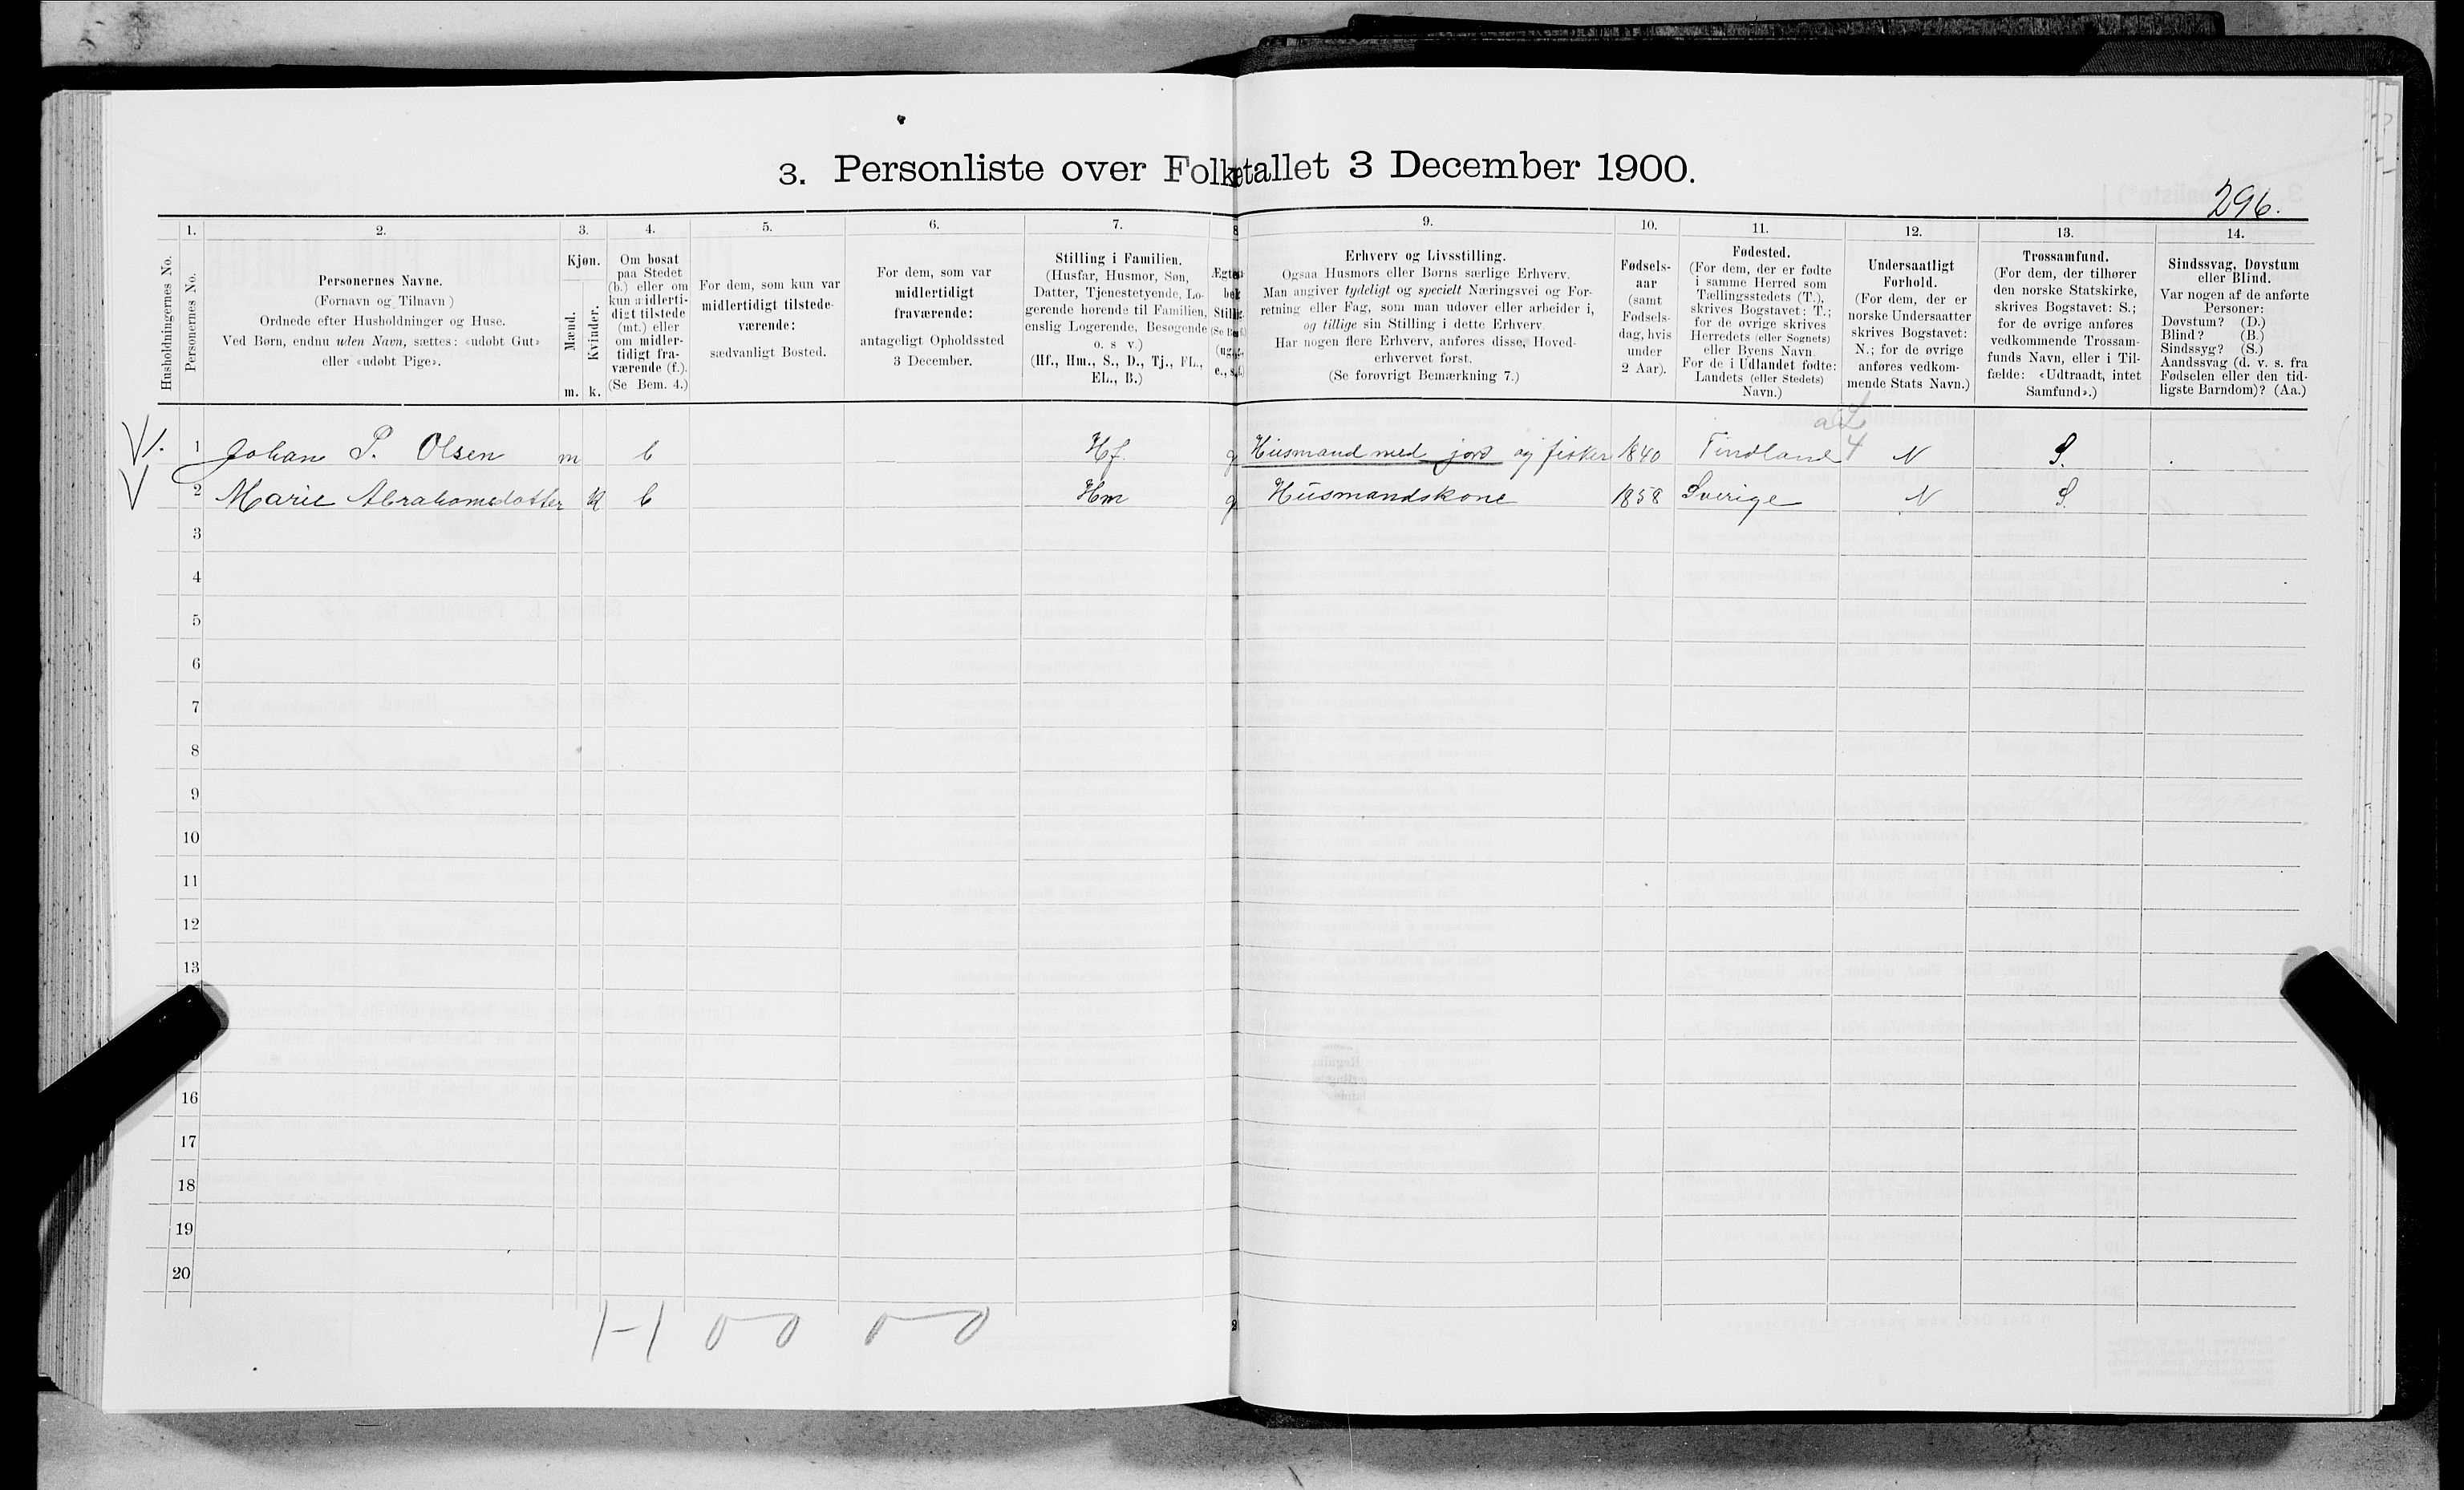 3. Personliste over Folketallet 3 December 1900.
296.
1. 2. 3. 4. 5. 6. 7. 8 9. 10. 11. 12. 13. 14.
Husholdningernes No.
Personernes No.
Personernes Navne.
(Fornavn og Tilnavn)
Ordnede efter Husholdninger og Huse.
Ved Børn, endnu uden Navn, sættes: «udøbt Gut»
eller «udøbt Pige».
Kjøn.
Mænd.
Kvinder.
m. k.
Om bosat
paa Stedet
(b.) eller om
kun midlerti-
digt tilstede
(mt.) eller
om midler-
tidigt fra-
værende (f.).
(Se Bem. 4.)
For dem, som kun var
midlertidigt tilstede-
værende:
sædvanligt Bosted.
For dem, som var
midlertidigt
fraværende:
antageligt Opholdssted
3 December.
Stilling i Familien.
(Husfar, Husmor, Søn,
Datter, Tjenestetyende, Lo-
gerende hørende til Familien,
enslig Logerende, Besøgende
o. s v.)
(Hf., Hm., S., D., Tj., FL.,
EL., B.)
Erhverv og Livsstilling.
Ogsaa Husmors eller Børns særlige Erhverv.
Man angiver tydeligt og specielt Næringsvei og For-
retning eller Fag, som man udøver eller arbeider i,
og tillige sin Stilling i dette Erhverv.
Har nogen flere Erhverv, anføres disse, Hoved-
erhvervet først.
(Se forøvrigt Bemærkning 7.)
Fødsels-
aar
(samt
Fødsels-
dag, hvis
under
2 Aar).
Fødested.
(For dem, der er fødte
i samme Herred som
Tællingsstedets (T.),
skrives Bogstavet: T.;
for de øvrige skrives
Herredets (eller Sognets)
eller Byens Navn.
For de i Udlandet fødte:
Landets (eller Stedets)
Navn.)
Undersaatligt
Forhold.
(For dem, der er
norske Undersaatter
skrives Bogstavet:
N.; for de øvrige
anføres vedkom-
mende Stats Navn.)
Trossamfund.
(For dem, der tilhører
den norske Statskirke,
skrives Bogstavet: S.;
for de øvrige anføres
vedkommende Trossam-
funds Navn, eller i Til-
fælde: «Udtraadt, intet
Samfund».)
Sindssvag, Døvstum
eller Blind.
Var nogen af de anførte
Personer:
Døvstum? (D.)
Blind? (B.)
Sindssyg? (S.)
Aandssvag (d. v. s. fra
Fødselen eller den tid-
ligste Barndom)? (Aa.)
1. 1 Johan P. Olsen m b Hf. g Husmand med jord og fisker 1840 Findland 4 N S.
2 Marie Abrahamsdatter k b Hm g Husmandskone 1858 Sverige N S.
3
4
5
6
7
8
9
10
11
12
13
16
17
18
19
20
1-1 0 0 0 0